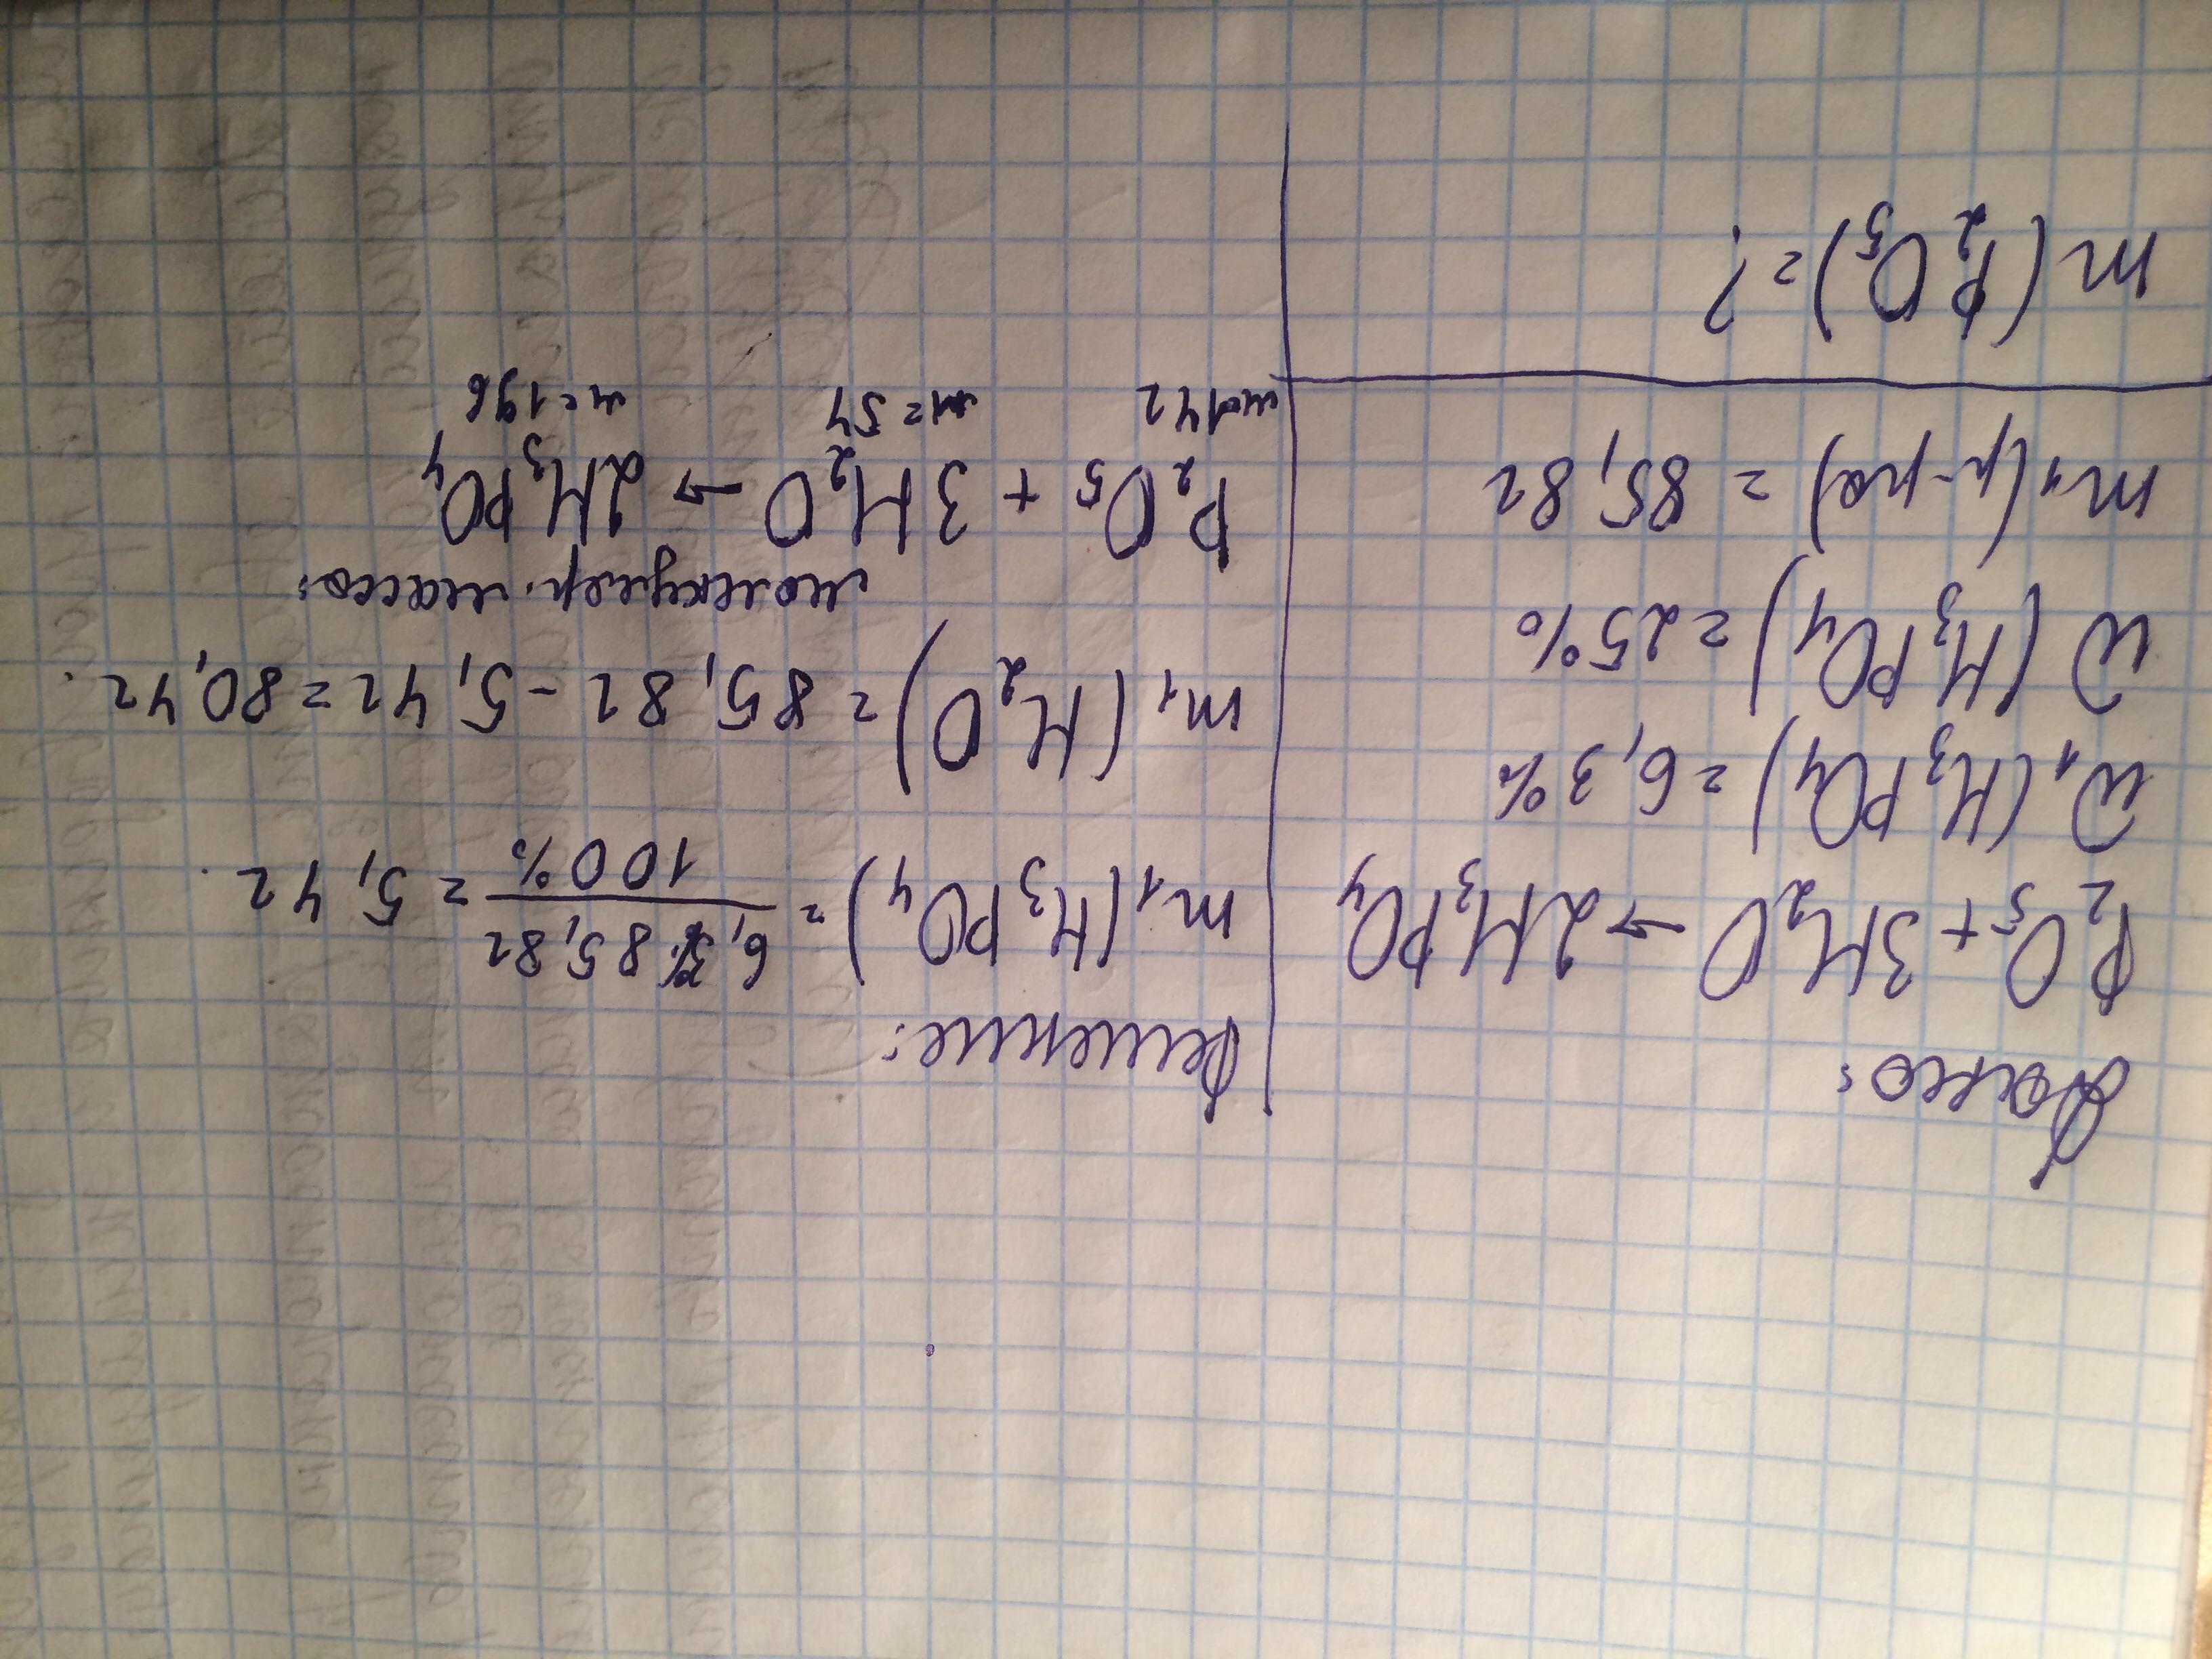 Дано:
P₂O₅ + 3H₂O → 2H₃PO₄
ω₁(H₃PO₄) = 6,3%
ω(H₃PO₄) = 25%
m₁(р-ра) = 85,8г
m(P₂O₅) = ?
Решение:
m₁(H₃PO₄) = 6,3%·85,8г / 100% = 5,4г.
m₁(H₂O) = 85,8г - 5,4г = 80,4г.
молекуляр. масса:
P₂O₅ + 3H₂O → 2H₃PO₄
м=142 м=54 м=196